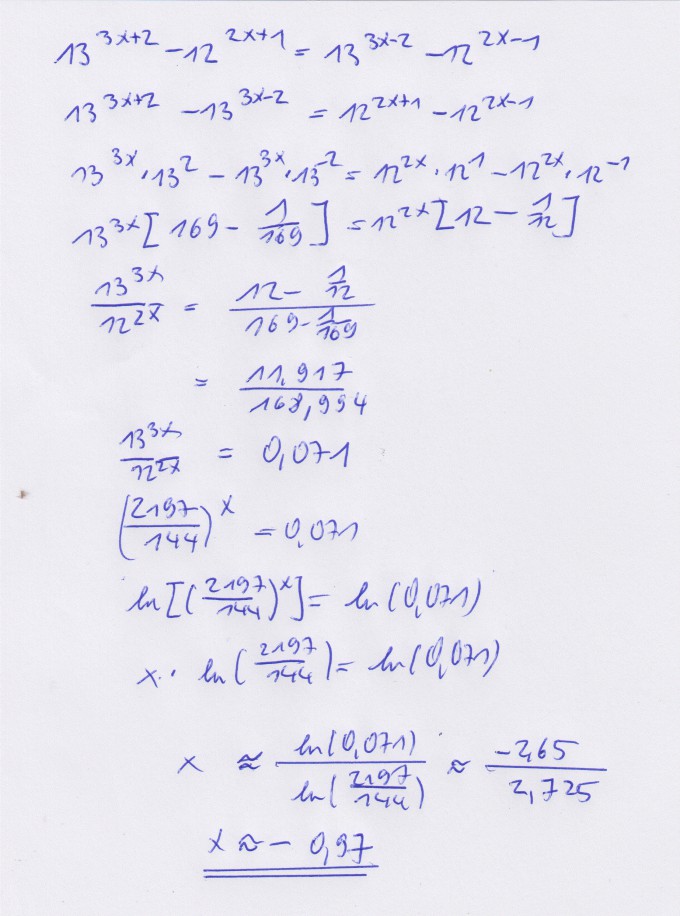 13^(3x+2) - 12^(2x+1) = 13^(3x-2) - 12^(2x-1)
13^(3x+2) - 13^(3x-2) = 12^(2x+1) - 12^(2x-1)
13^(3x) · 13^2 - 13^(3x) · 13^(-2) = 12^(2x) · 12^1 - 12^(2x) · 12^(-1)
13^(3x) [169 - 1/169] = 12^(2x) [12 - 1/12]
13^(3x) / 12^(2x) = (12 - 1/12) / (169 - 1/169)
= 11,917 / 168,994
13^(3x) / 12^(2x) = 0,071
(2197/144)^x = 0,071
ln[(2197/144)^x] = ln(0,071)
x · ln(2197/144) = ln(0,071)
x ≈ ln(0,071) / ln(2197/144) ≈ -2,65 / 2,725
x ≈ - 0,97